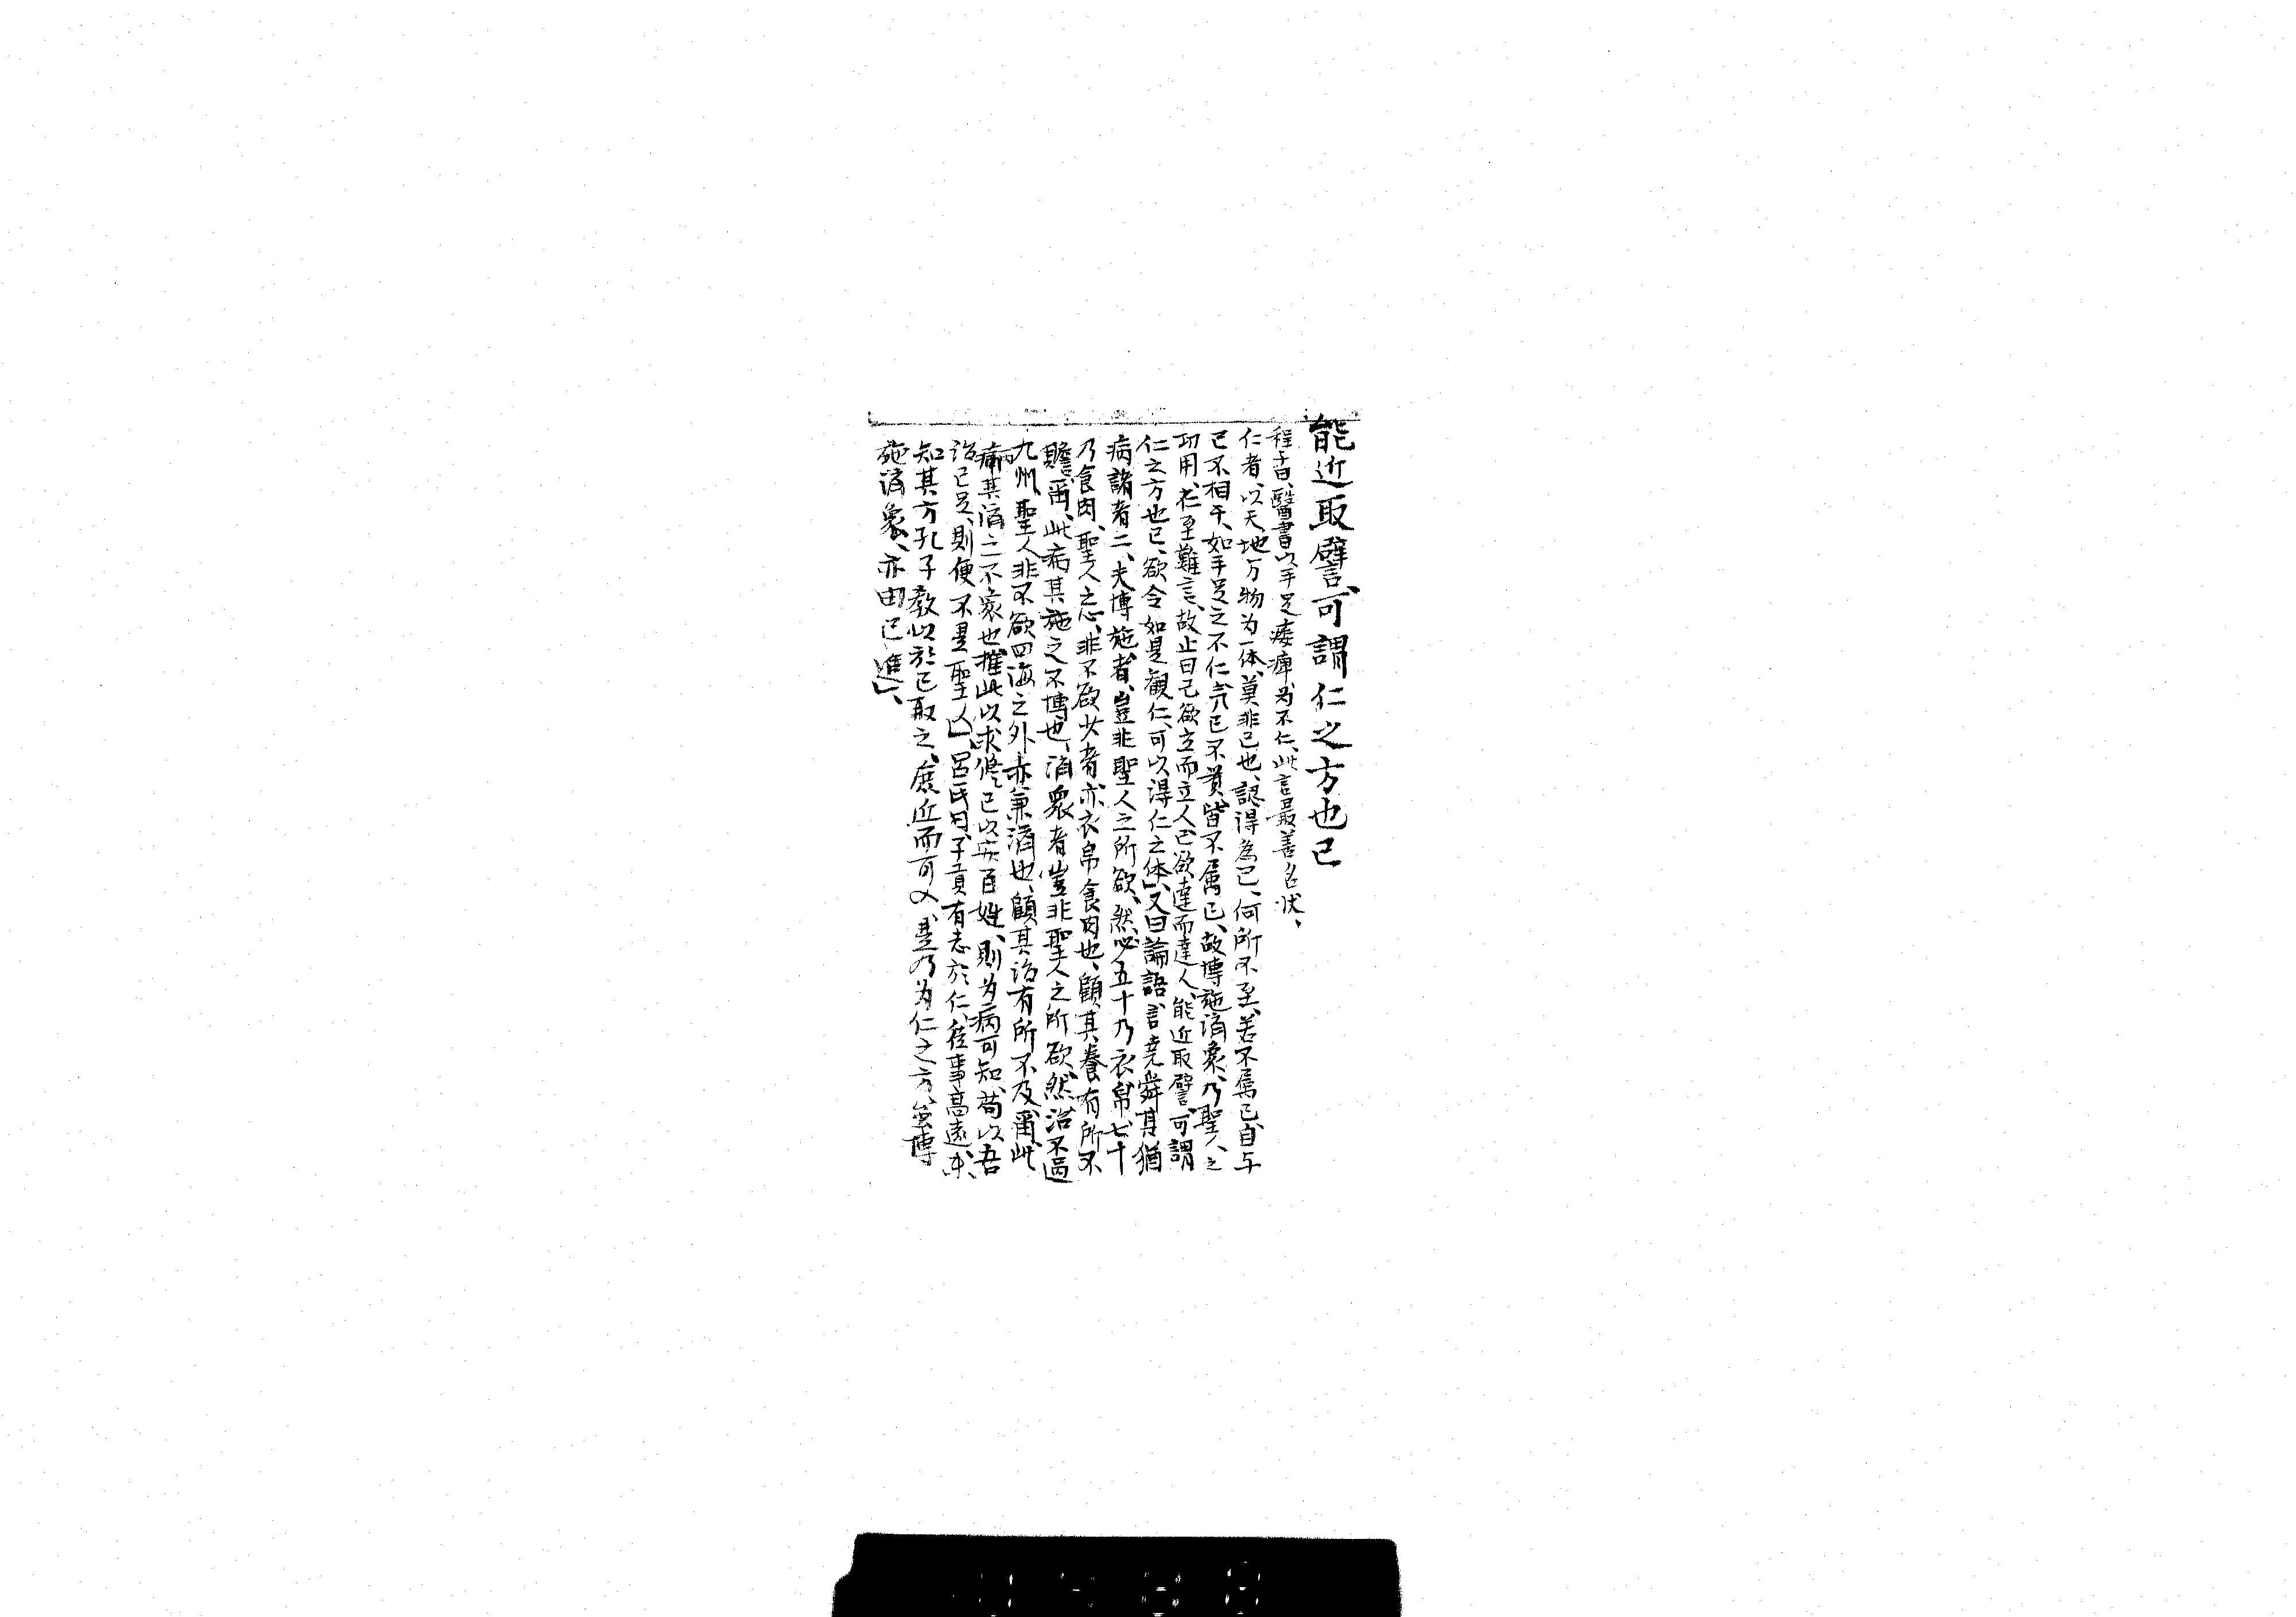 能近取譬、可謂仁之方也已
程子曰、醫書以手足痿痺為不仁、此言最善名状、
仁者、以天地万物为一体、莫非己也、認得為己、何所不至、若不属己、自与
己不相干、如手足之不仁、气已不貫、皆不属己、故博施済衆、乃聖人之
功用、仁至難言、故止曰己欲立而立人、己欲達而達人、能近取譬、可謂
仁之方也已、欲令如是観仁、可以得仁之体」、又曰論語言尭舜其猶
病諸者二、夫博施者、豈非聖人之所欲、然必五十乃衣帛、七十
乃食肉、聖人之心、非不欲少者亦衣帛食肉也、顧其養有所不
贍爾、此病其施之不博也、済衆者豈非聖人之所欲、然治不過
九州、聖人非不欲四海之外亦兼済也、顧其治有所不及爾、此
病其済之不衆也、推此以求修己以安百姓、則为病可知、苟以吾
治已足、則便不是聖人」、呂氏曰、子貢有志於仁、徒事高遠、未
知其方孔子教以於己取之、庶近而可入、是乃为仁之方、雖博
施済衆、亦由已進」、